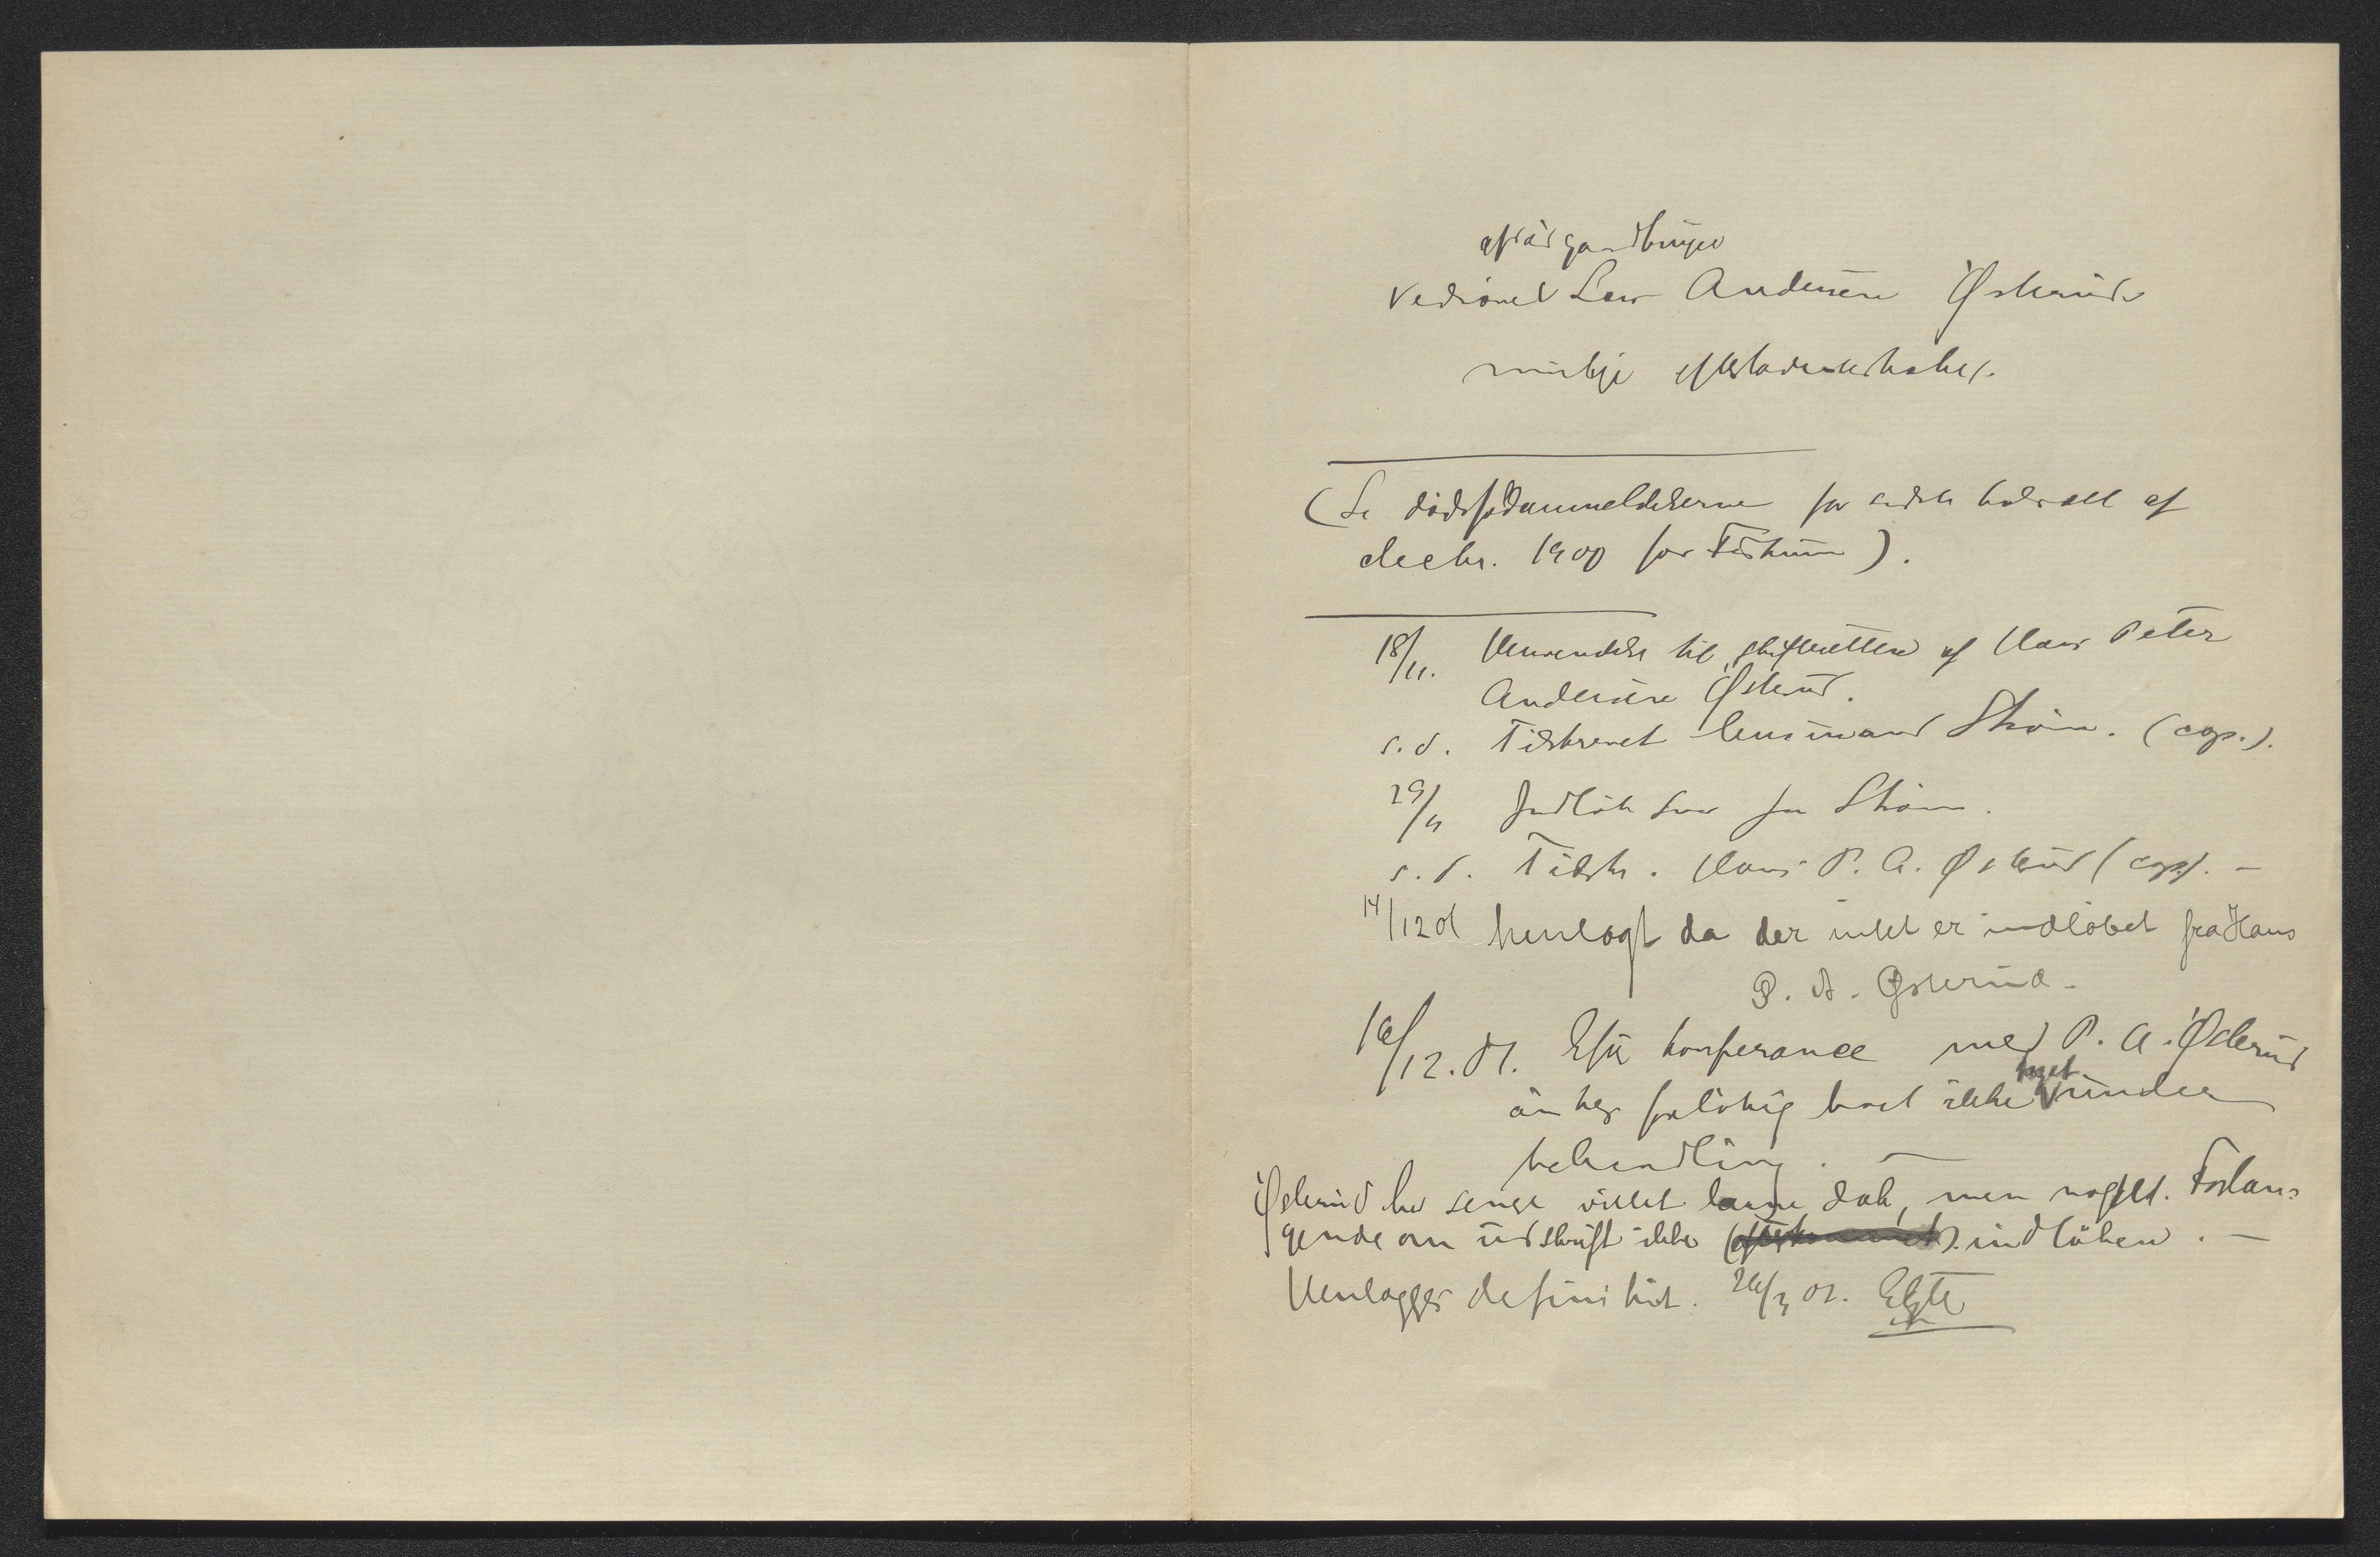 afdød gaardbruger
Vedrørende Lars Andersen Østerud
mulige efterladenskaber.
(Se dødsfaldanmeldelserne for sidste halvdel af
decbr. 1900 for Fiskum).
18/11. Henvendelse til skifteretten af Hans Peter
Andersen Østerud.
s.d. Tilskrevet lensmand Strøm. (cop.).
29/11 Indløb svar fra Strøm.
s.d. Tilskr. Hans P. A. Østerud (cop). –
14/12 01 henlagt da der intet er indløbet fra Hans
P. A. Østerud –
16/12. 01. Efter konferance med P. A. Østerud
foreløbig boet ikke taget under
behandling. –
Østerud har senere villet dog, men Forlan-
gende om udskrift ikke (efterkommet) indløben. –
Henlægges definitivt. 26/3 02.